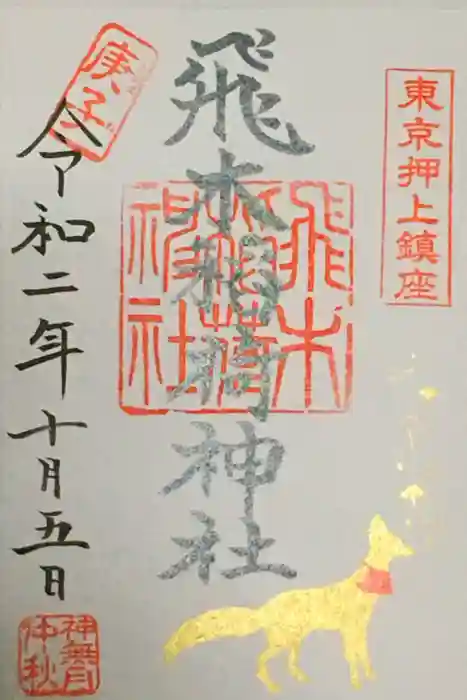 東京押上鎮座
飛木稲荷神社
飛木稲荷神社
庚子
令和二年十月五日
神無月
仲秋